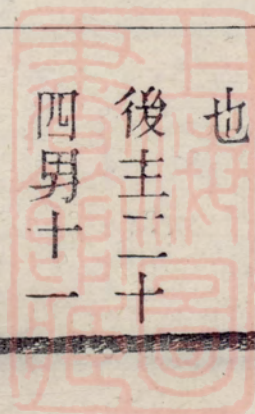 也
後主二十
四男十一